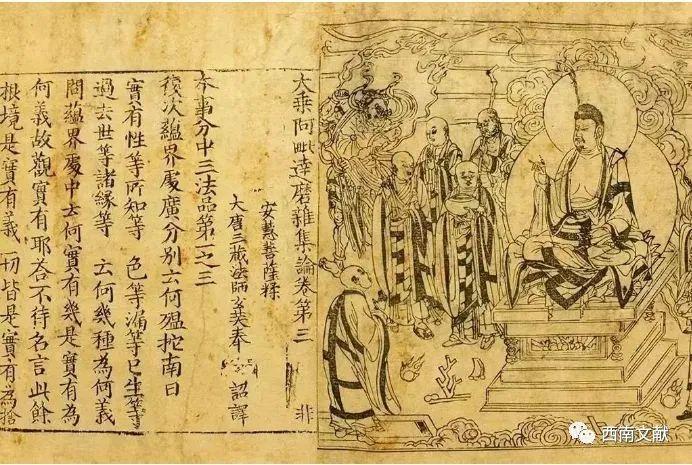 大乘阿毗達磨雜集論卷第三 非
安慧菩薩糅
大唐三藏法師玄奘奉 詔譯
本事分中三法品第一之三
復次蘊界處廣分別云何嗢拕南曰
實有性等所知等 色等漏等已生等
過去世等諸緣等 云何幾種為何義
問蘊界處中云何實有幾是實有為
何義故觀實有耶荅不待名言此餘
根境是實有義一切皆是實有為捨
西南文献